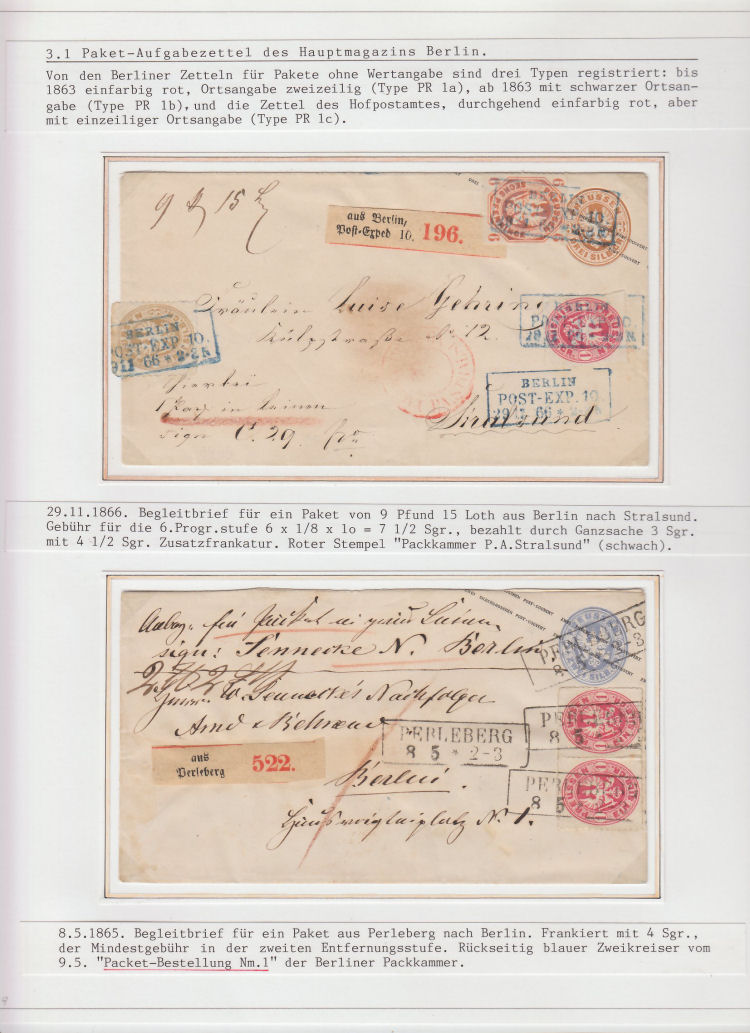 3.1 Paket-Aufgabezettel des Hauptmagazins Berlin.
Von den Berliner Zetteln für Pakete ohne Wertangabe sind drei Typen registriert: bis
1863 einfarbig rot, Ortsangabe zweizeilig (Type PR 1a), ab 1863 mit schwarzer Ortsan-
gabe (Type PR 1b), und die Zettel des Hofpostamtes, durchgehend einfarbig rot, aber
mit einzeiliger Ortsangabe (Type PR 1c).
9 15
aus Berlin,
Post-Exped 10. 196.
Fräulein Luise Gehring
No 12.
BERLIN
POST-EXP. 10.
29 11 66 * 2-3 N
Hierbei
1 in Leinen
sign C. 29.
BERLIN
POST-EXP. 10.
29 11 66 *
Stralsund
29.11.1866. Begleitbrief für ein Paket von 9 Pfund 15 Loth aus Berlin nach Stralsund.
Gebühr für die 6.Progr.stufe 6 x 1/8 x 1o = 7 1/2 Sgr., bezahlt durch Ganzsache 3 Sgr.
mit 4 1/2 Sgr. Zusatzfrankatur. Roter Stempel "Packkammer P.A.Stralsund" (schwach).
sign: Sennecke N. Berlin
Nachfolger
PERLEBERG
8 5 * 2-3
PERLEBERG
8 5 * 2-3
PER
8 5
PER
8 5
aus
Perleberg 522.
Berlin.
Hausvoigteiplatz N. 1.
8.5.1865. Begleitbrief für ein Paket aus Perleberg nach Berlin. Frankiert mit 4 Sgr.,
der Mindestgebühr in der zweiten Entfernungsstufe. Rückseitig blauer Zweikreiser vom
9.5. "Packet-Bestellung Nm.1" der Berliner Packkammer.